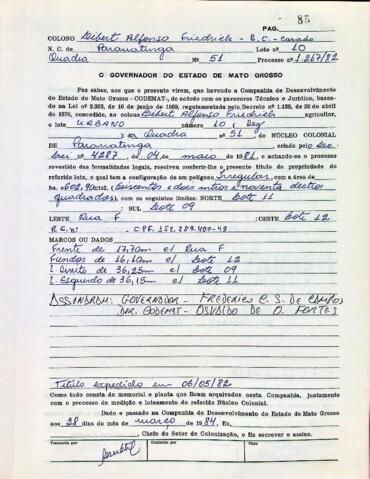 PAG. 85
COLONO Deibert Alfonso Friedrich - B.C. - Casado
N. C. de Paranatinga Lote nº 10
Quadra Nº 51 Processo nº 1.267/82
O GOVERNADOR DO ESTADO DE MATO GROSSO
Faz saber, aos que o presente virem, que havendo a Companhia de Desenvolvimento
do Estado de Mato Grosso - CODEMAT-, de acordo com os pareceres Técnico e Jurídico, basea-
do na Lei nº 2.903, de 10 de junho de 1969, regulamentada pelo Decreto nº 1.138, de 30 de abril
de 1970, concedido, ao colono Deibert Alfonso Friedrich agricultor,
o lote URBANO número 10 ( Dez
) da Quadra nº 51, do NÚCLEO COLONIAL
DE Paranatinga, criado pelo Dec.
Lei nº 4287, de 04 de maio de 1981, e achando-se o processo
revestido das formalidades legais, resolveu conferir-lhe o presente título de propriedade do
referido lote, o qual tem a configuração de um polígono Irregular, com a área de
ha. 602,90m2, (Seiscentos e dois mtros e noventa dectros
quadrados), com os seguintes limites: NORTE Lote 11
; SUL Lote 09
LESTE Rua F ;OESTE Lote 12
R.G. nº - CPF. 152.289.400-49
MARCOS OU DADOS
Frente de 17,70m c/ Rua F
Fundos de 16,10m c/ Lote 12
L. Direito de 36,25m c/ Lote 09
L. Esquerdo de 36,15m c/ Lote 11
ASSINARAM: GOVERNADOR - FREDERICO C. S. DE CAMPOS
DIR. CODEMAT - OSVALDO DE O. FORTES
Título expedido em 06/05/82
Como tudo consta do memorial e planta que ficam arquivados nesta Companhia, juntamente
com o processo de medição e loteamento do referido Núcleo Colonial.
Dado e passado na Companhia de Desenvolvimento do Estado de Mato Grosso
aos 28 dias do mês de março de 1984. Eu,
, Chefe do Setor de Colonização, o fiz escrever e assino.
Transcrito por Conferido por Visto